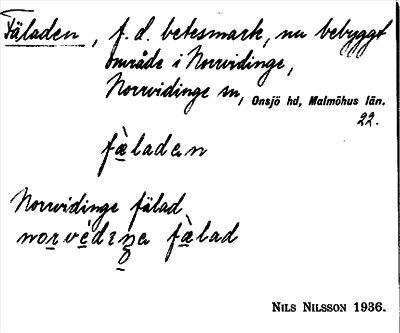 Fäladen, f. d. betesmark, nu bebyggt
område i Norrvidinge,
Norrvidinge sn, Onsjö hd, Malmöhus län.
22.
fæ̀ladən
Norrvidinge fälad
fæ̀lad
NILS NILSSON 1936.